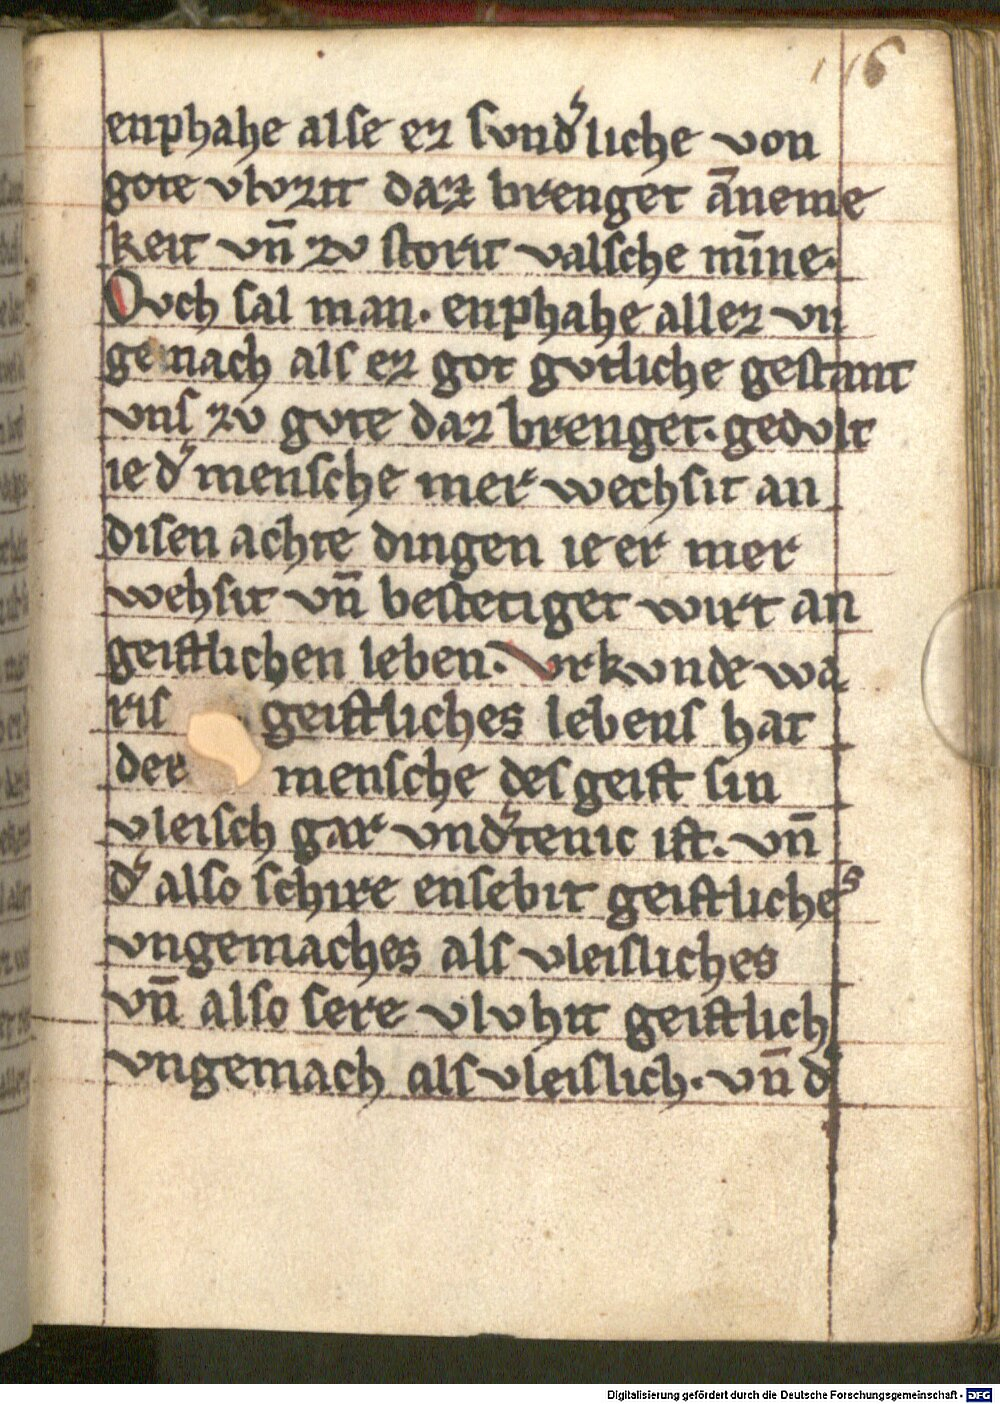 116
enphahe alse ez sundˀliche von
gote vluzit daz brenget āneme
keit vn̄ zv storit valsche mīne·
Ovch sal man· enphahe allez vn
gemach als ez got gvtliche gestatit
vns zv gvte daz brenget· gedvlt
ie dˀ mensche mer wechsit an
disen achte dingen ie er mer
wehsit vn̄ bestetiget wirt an
geistlichen leben· Vrkvnde wa
ris geistliches lebens hat
der mensche des geist sin
vleisch gar vndˀtenic ist· vn̄
dˀ also schire ensebit geistliches
vngemaches als vleisliches
vn̄ also sere vlvhit geistlich
vngemach als vleislich· vn̄ dˀ
Digitalisierung gefördert durch die Deutsche Forschungsgemeinschaft - DFG